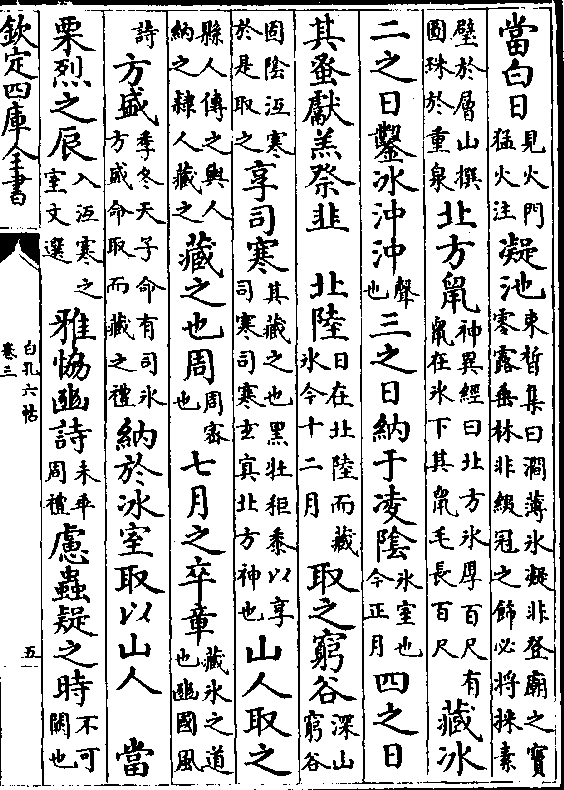 當白日見火門猛火注凝池束晳集曰澗薄氷凝非登廟之寳零露垂林非綴冠之飾必將採素
璧於層山撰圓珠於重泉北方鼠神異經曰北方氷厚百尺有鼠在氷下其鼠毛長百尺藏冰
二之日鑿冰沖沖聲也三之日納于凌陰氷室也今正月四之日
其蚤獻羔祭韭 北陸日在北陸而藏氷今十二月取之窮谷深山窮谷
固陰沍寒於是取之享司寒其藏之也黑牡秬黍以享司寒司寒玄冥北方神也山人取之
縣人傳之輿人納之隸人藏之藏之也周周宻也七月之卒章藏氷之道也豳國風
詩方盛季冬天子命有司氷方盛命取而藏之禮納於冰室取以山人 當
栗烈之辰入沍寒之室文選雅協豳詩未卒周禮慮蟲疑之時不可闕也
欽定四庫全書
白孔六帖
卷三
五